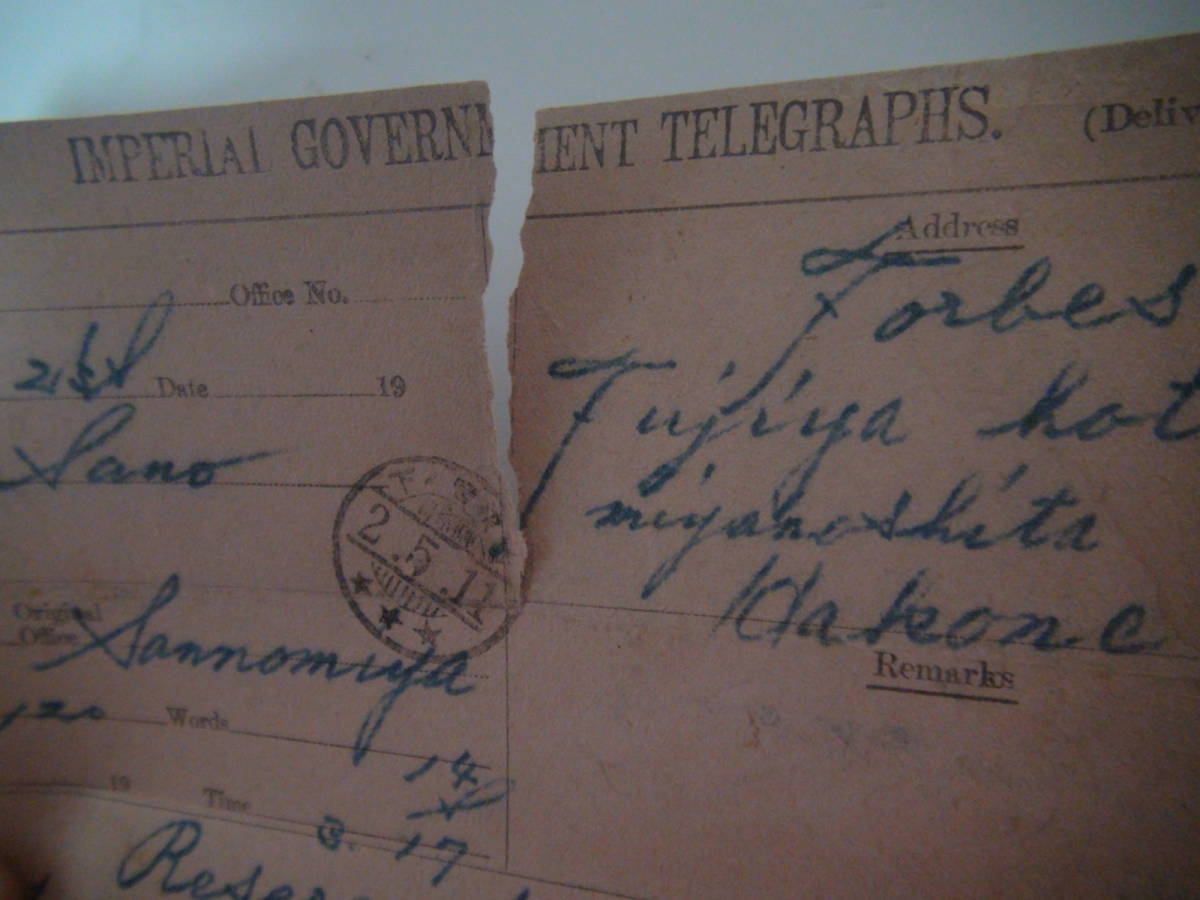 IMPERIAL GOVERNMENT TELEGRAPHS. (Deliv
Office No.
Date 19
Sano
2.5.11
Original
Office
Sannomiya
120 Words
14
19 Time
3.17
Address
Forbes
Fujiya hot
miyanoshita
Hakone
Remarks